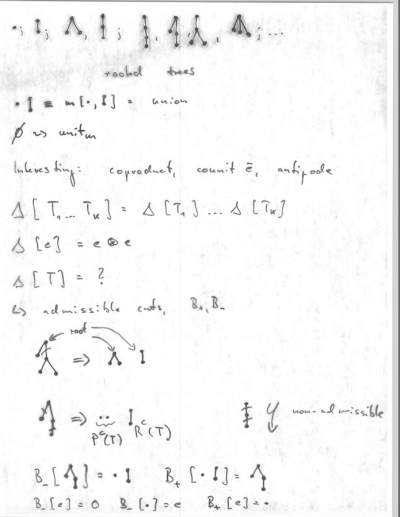 rooted trees
• I ≡ m[•, I] = union
∅ ⇝ unit m
Interesting: coproduct, counit ē, antipode
Δ[T₁...Tₖ] = Δ[T₁]...Δ[Tₖ]
Δ[e] = e⊗e
Δ[T] = ?
↳ admissible cuts, B₊, B₋
root
⇒
⇒ Pᶜ(T) Rᶜ(T) non-admissible
B₋[ ] = • I B₊[• I] =
B₋[e] = 0 B₋[•] = e B₊[e] = •